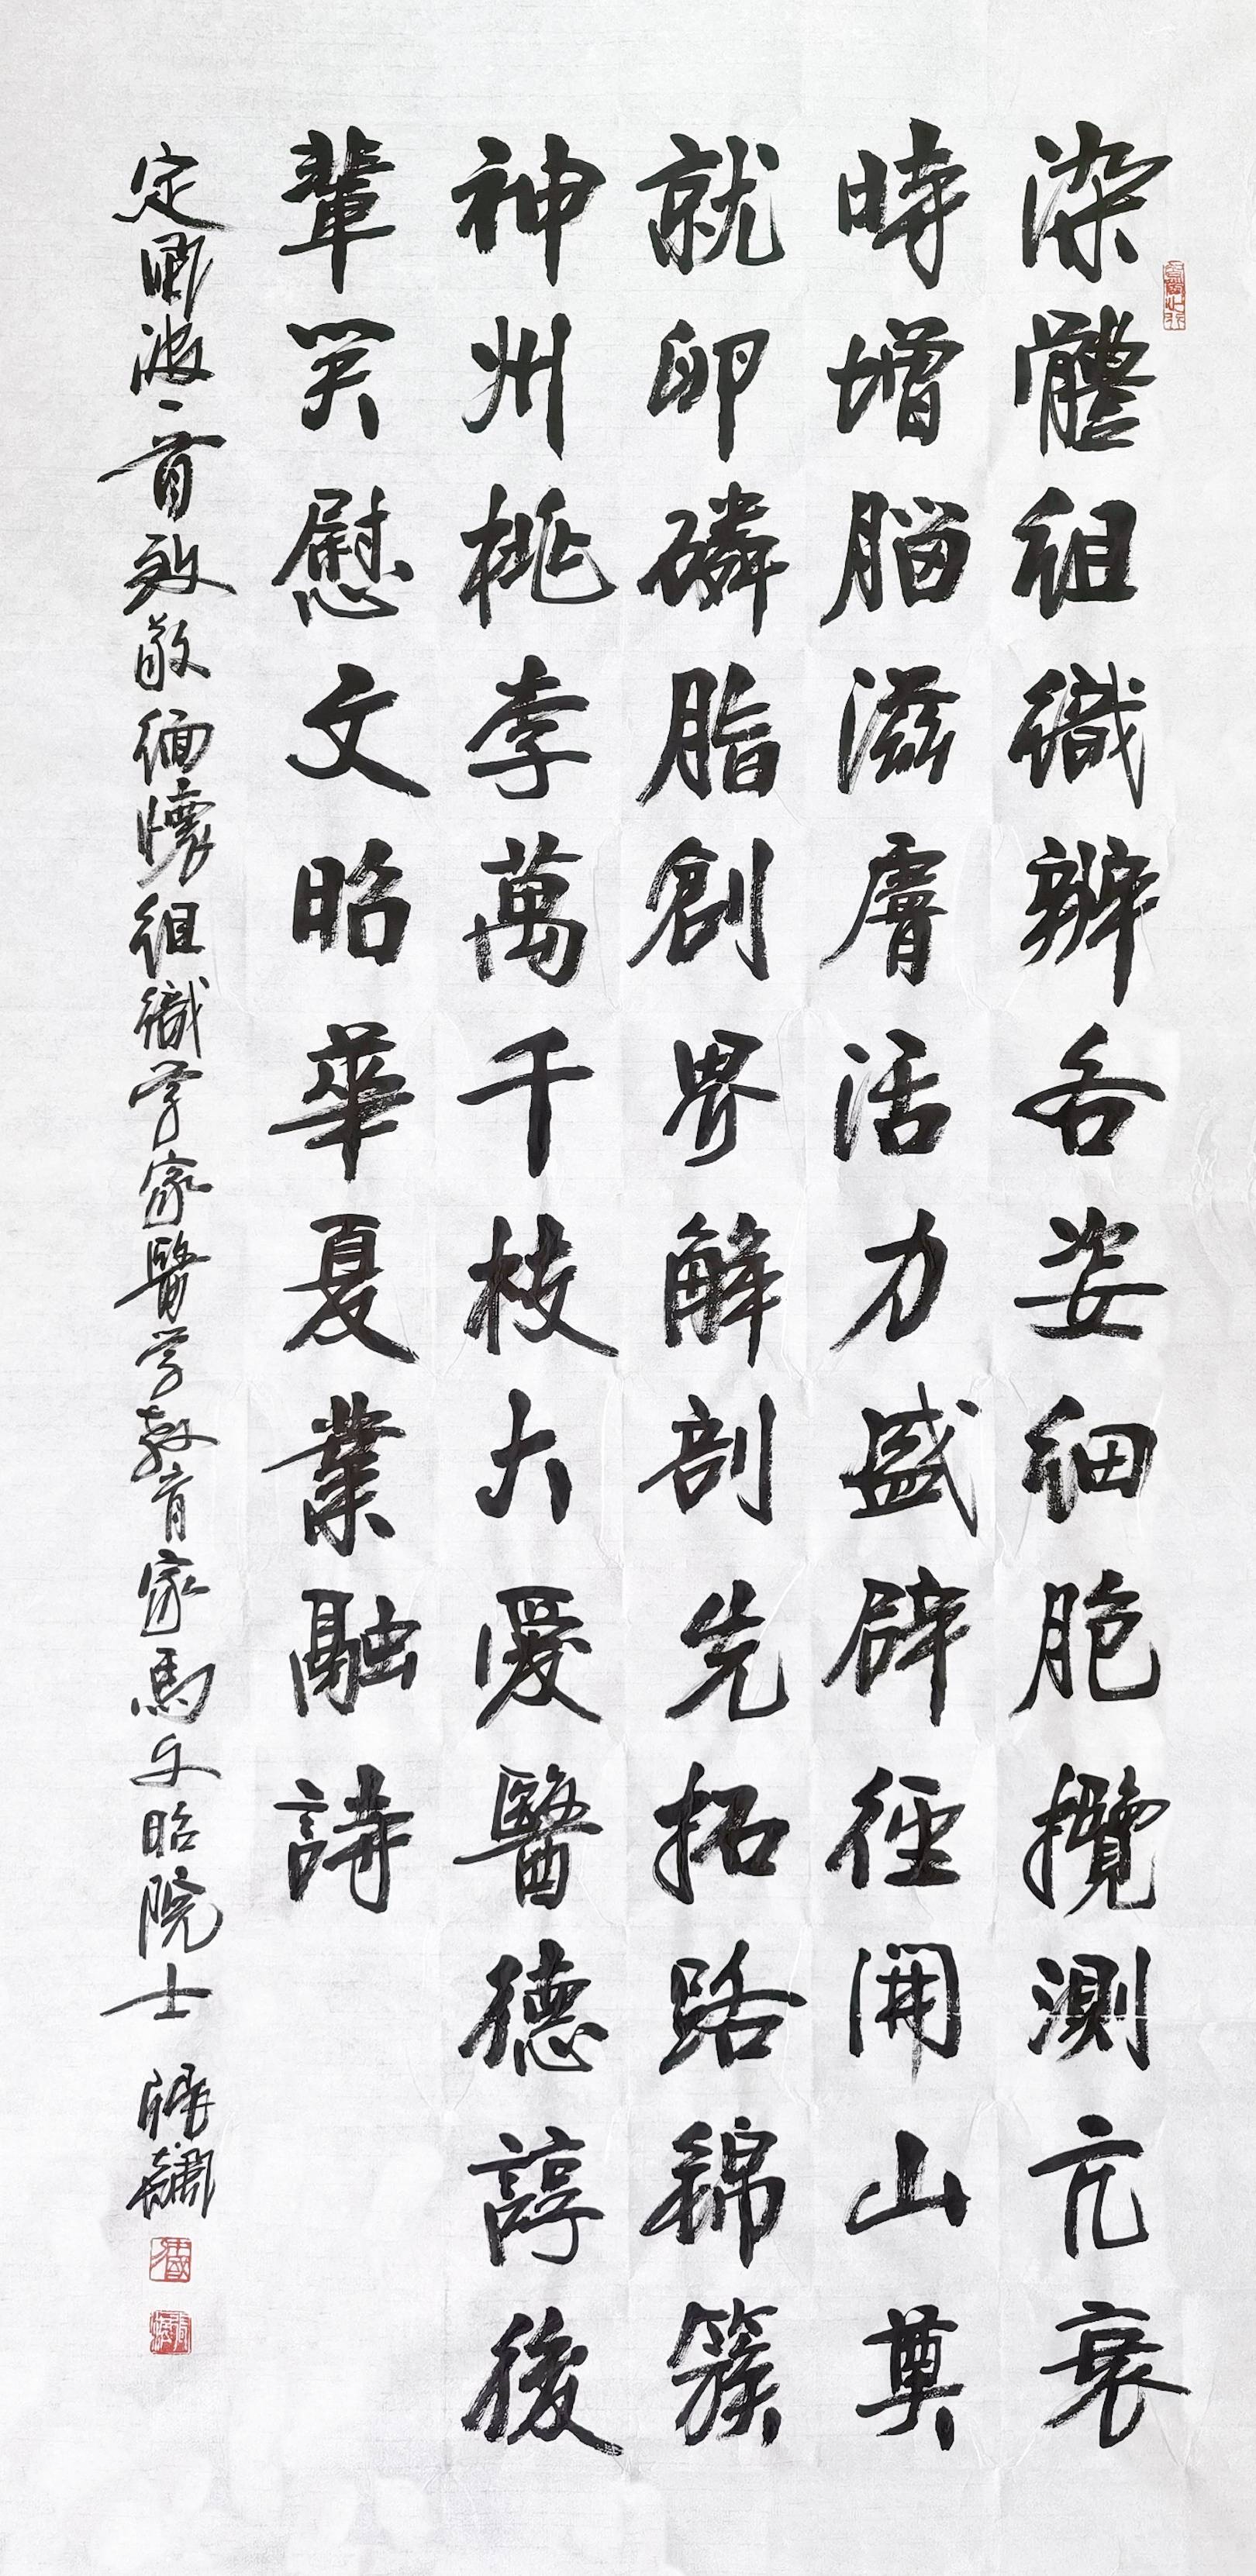 染體組織辦各姿細胞攬測亢衰
時增腦滋膚活力盛辟徑開山奠
就卵磷脂創界解剖先拓路錦簇
神州桃李萬千枝大愛醫德諄後
輩笑慰文昭華夏業融詩
定風波一首致敬緬懷組織学家醫学教育家馬文昭院士